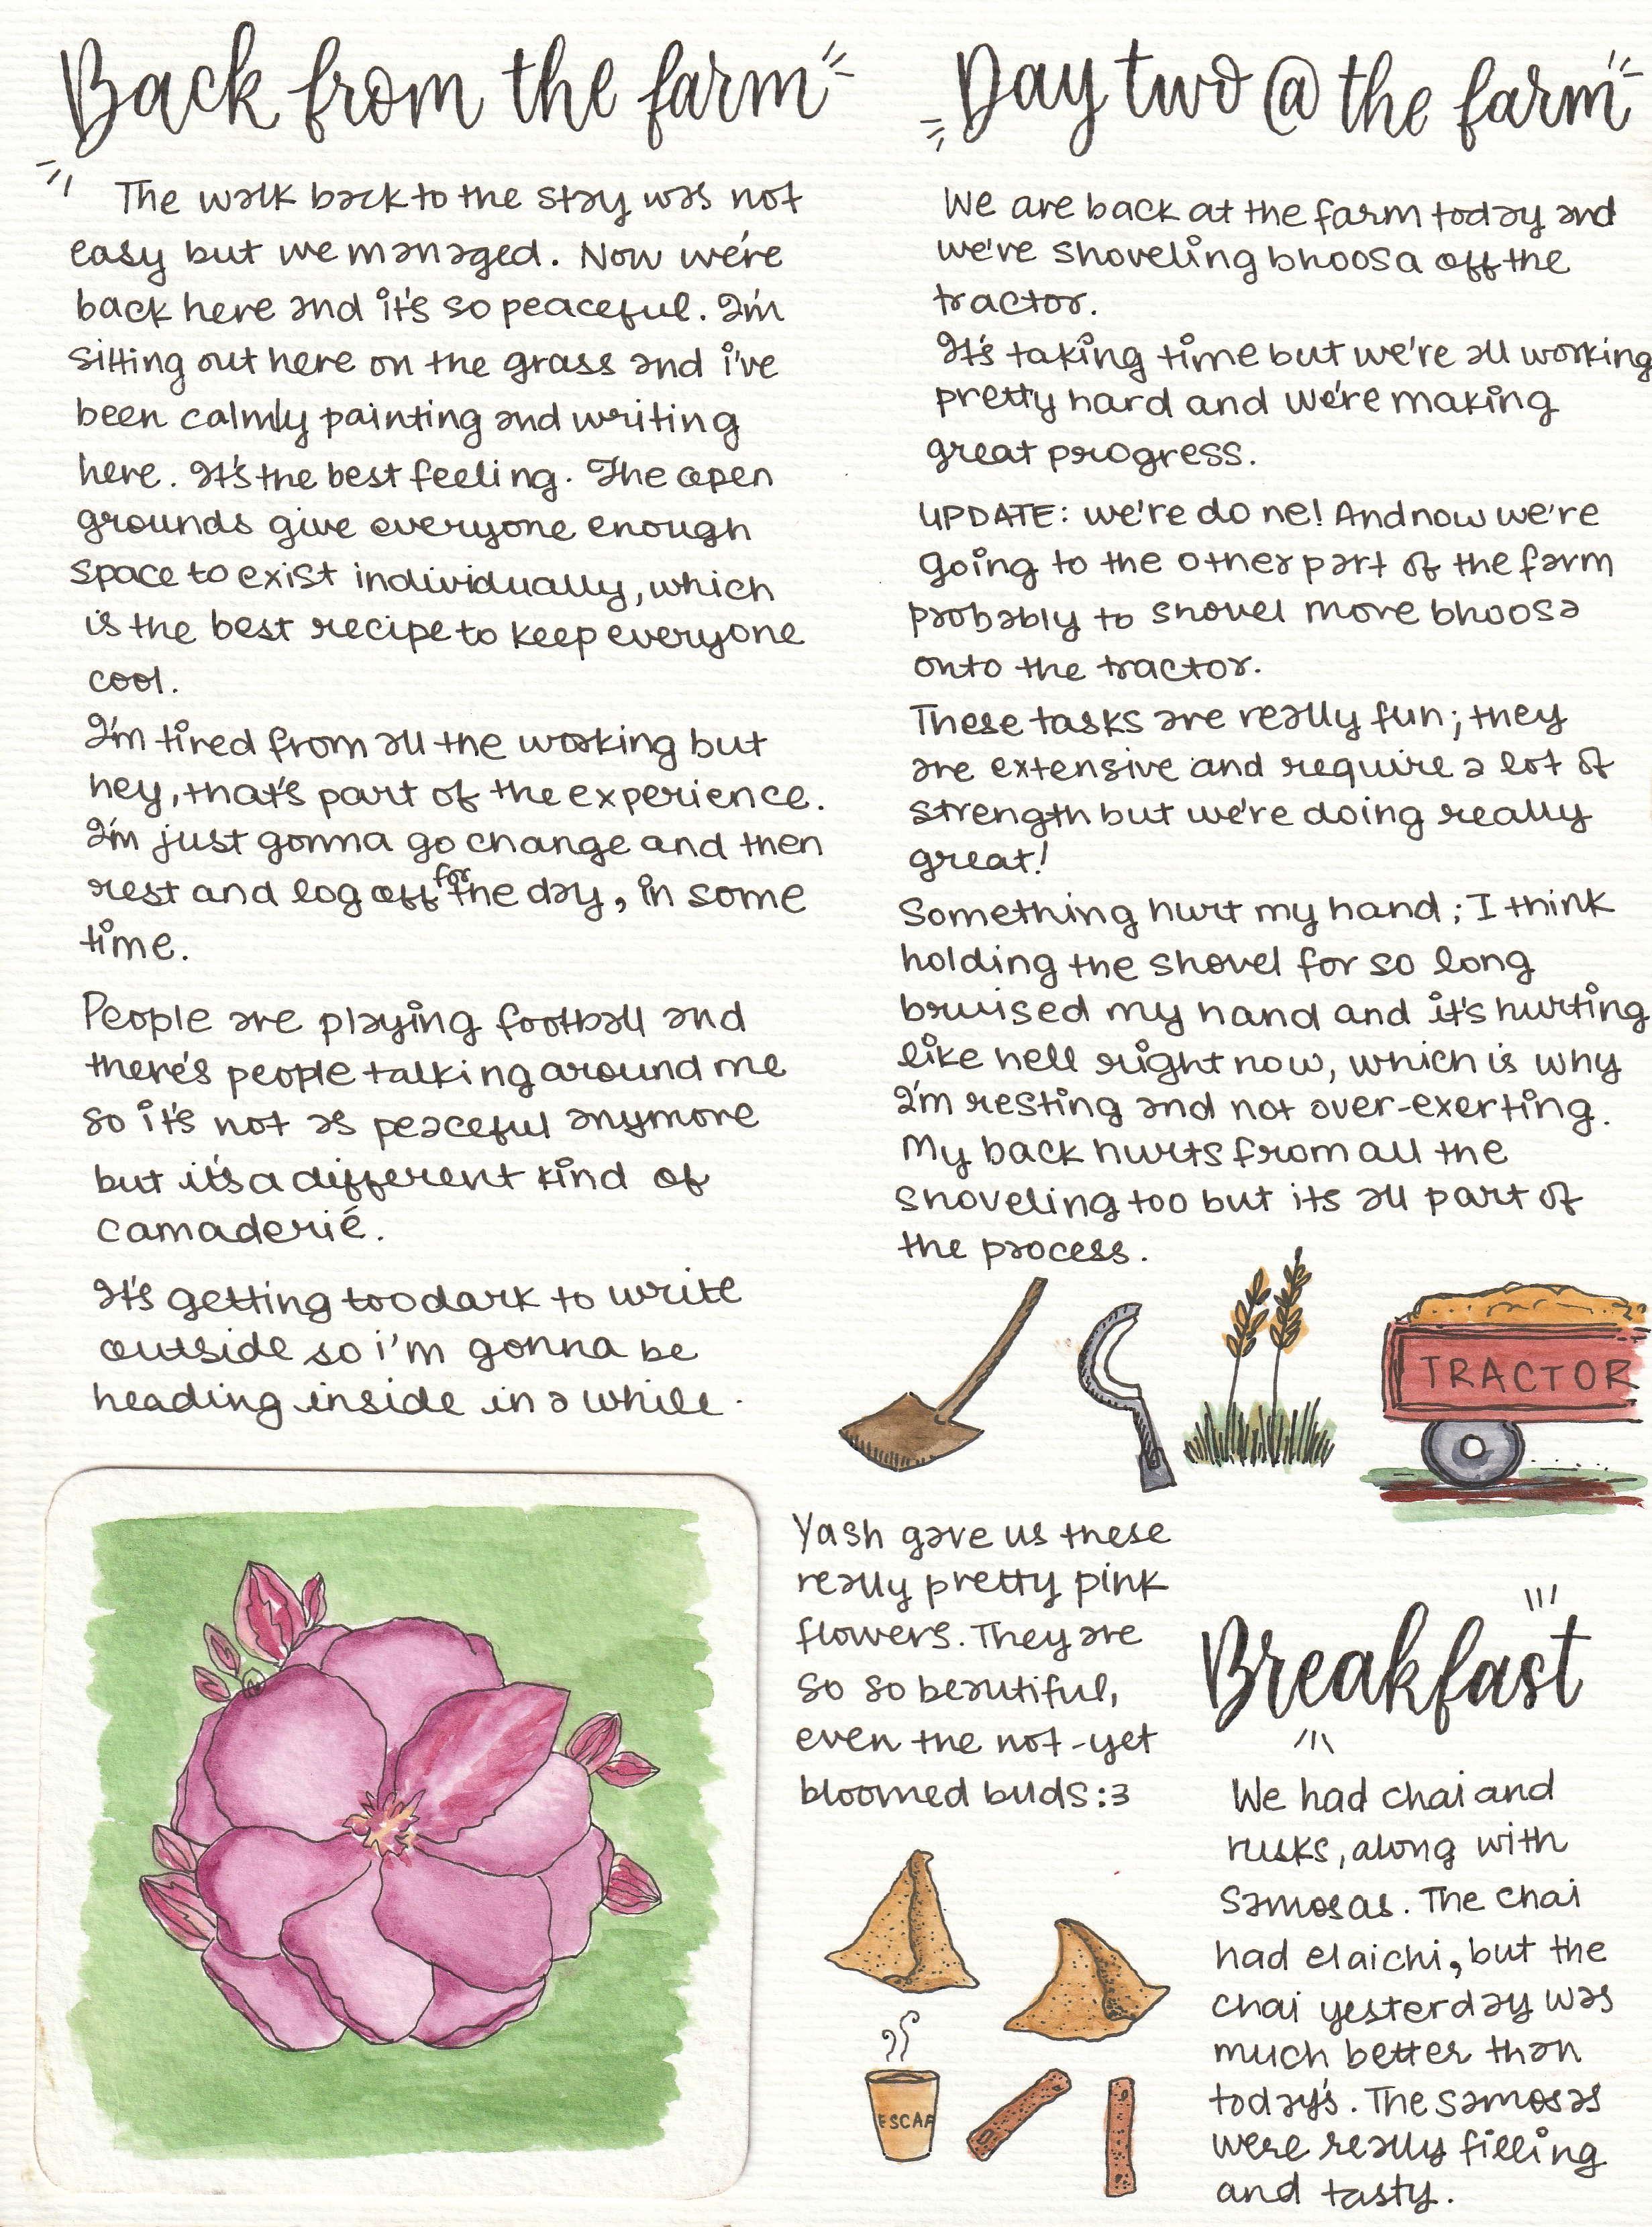 Back from the farm
The walk back to the stay was not
easy but we managed. Now we're
back here and it's so peaceful. I'm
sitting out here on the grass and i've
been calmly painting and writing
here. It's the best feeling. The open
grounds give everyone enough
space to exist individually, which
is the best recipe to keep everyone
cool.
I'm tired from all the working but
hey, that's part of the experience.
I'm just gonna go change and then
rest and log off for the day, in some
time.
People are playing football and
there's people talking around me
so it's not as peaceful anymore
but it's a different kind of
camaderié.
It's getting too dark to write
outside so i'm gonna be
heading inside in a while.
Day two @ the farm
We are back at the farm today and
we've shoveling bhoosa off the
tractor.
It's taking time but we're all working
pretty hard and we're making
great progress.
UPDATE: we're done! And now we're
going to the other part of the farm
probably to shovel more bhoosa
onto the tractor.
These tasks are really fun; they
are extensive and require a lot of
strength but we're doing really
great!
Something hurt my hand; I think
holding the shovel for so long
bruised my hand and it's hurting
like hell right now, which is why
I'm resting and not over-exerting.
My back hurts from all the
shoveling too but its all part of
the process.
TRACTOR
Yash gave us these
really pretty pink
flowers. They are
so so beautiful,
even the not-yet
bloomed buds :3
Breakfast
We had chai and
rusks, along with
samosas. The chai
had elaichi, but the
chai yesterday was
much better than
today's. The samosas
were really filling
and tasty.
ESCAP